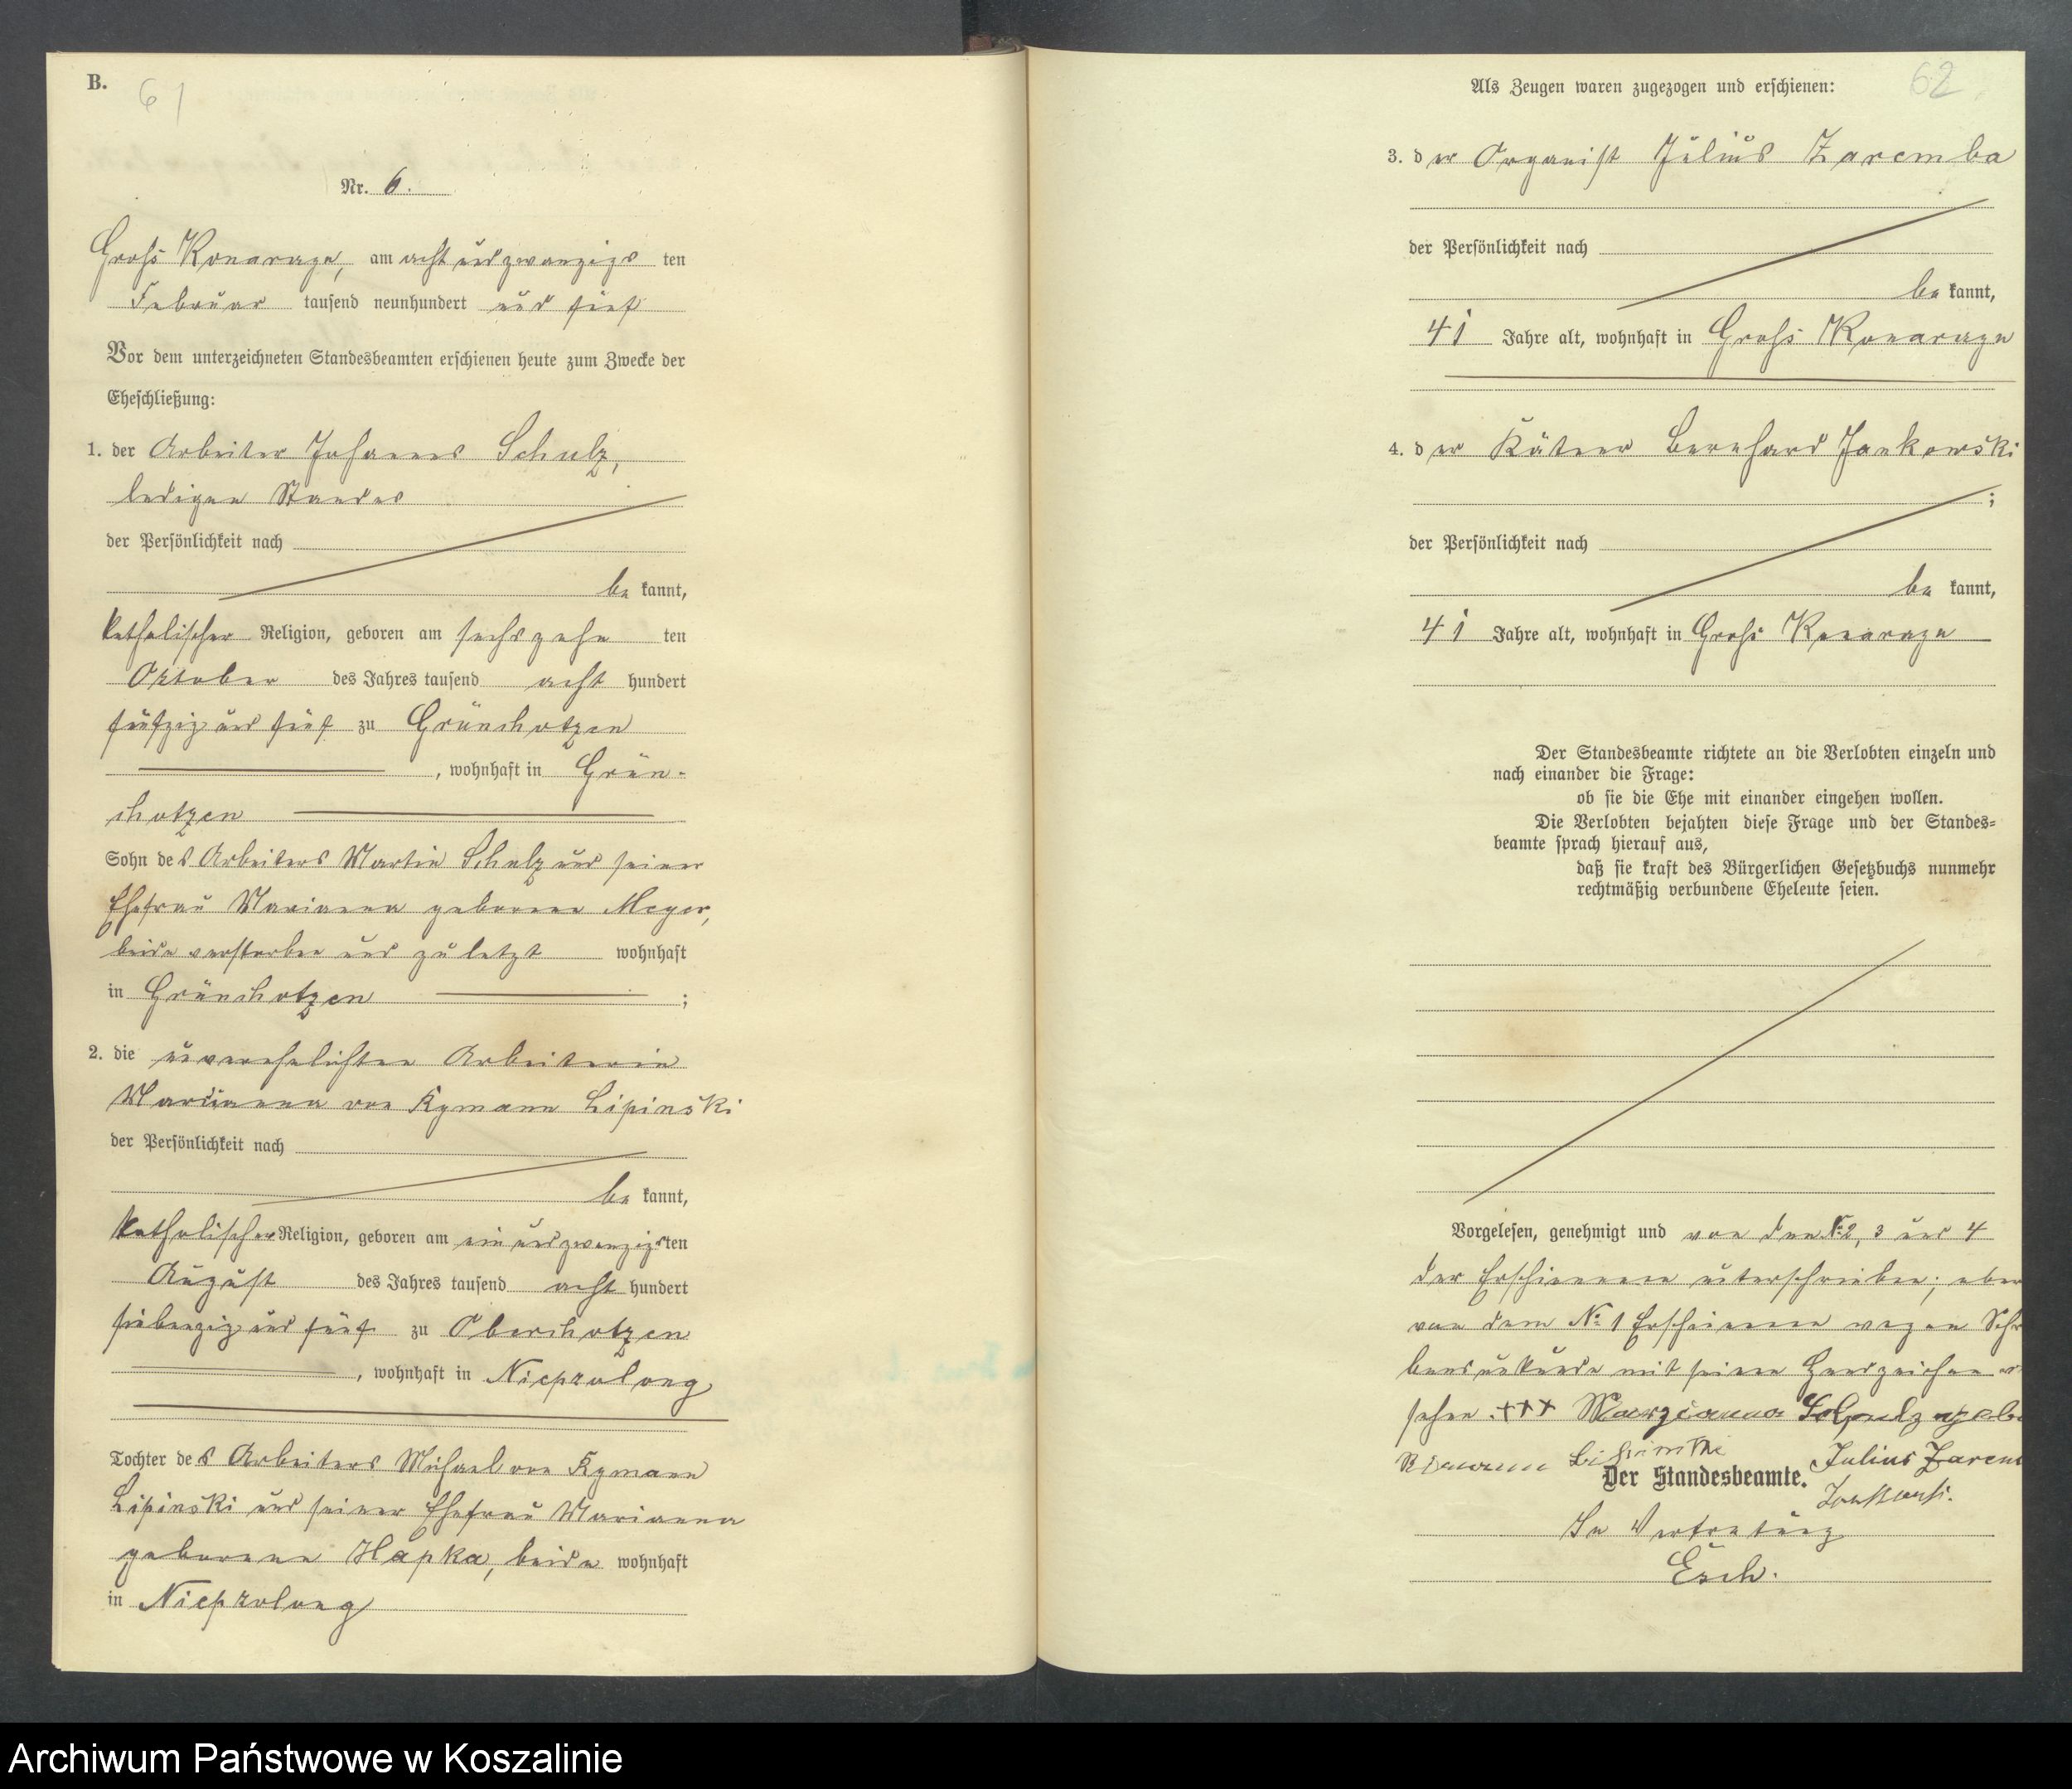 B.
61
Nr. 6.
Groß Konarzyn, am acht und zwanzigs ten
Februar tausend neunhundert und fünf
Vor dem unterzeichneten Standesbeamten erschienen heute zum Zwecke der
Eheschließung:
1. der Arbeiter Johannes Schulz,
ledigen Standes
der Persönlichkeit nach
be kannt,
katholischer Religion, geboren am sechszehn ten
Oktober des Jahres tausend acht hundert
fünfzig und fünf zu Grünchotzen
, wohnhaft in Grün-
chotzen
Sohn des Arbeiters Martin Schulz und seiner
Ehefrau Marianna geborene Meyer,
beide verstorben und zuletzt wohnhaft
in Grünchotzen ;
2. die unverehelichten Arbeiterin
Marianna von Kymann Lipinski
der Persönlichkeit nach
be kannt,
katholischer Religion, geboren am ein und zwanzigsten
August des Jahres tausend acht hundert
siebenzig und fünf zu Oberchotzen
, wohnhaft in Niepzolong
Tochter des Arbeiters Michael von Kymann
Lipinski und seiner Ehefrau Marianna
geborene Hapka, beide wohnhaft
in Niepzolong
Als Zeugen waren zugezogen und erschienen:
62
3. der Organist Julius Zaremba
der Persönlichkeit nach
be kannt,
41 Jahre alt, wohnhaft in Groß Konarzyn
4. der Kätner Bernhard Jankowski
;
der Persönlichkeit nach
be kannt,
41 Jahre alt, wohnhaft in Groß Konarzyn
Der Standesbeamte richtete an die Verlobten einzeln und
nach einander die Frage:
ob sie die Ehe mit einander eingehen wollen.
Die Verlobten bejahten diese Frage und der Standes-
beamte sprach hierauf aus,
daß sie kraft des Bürgerlichen Gesetzbuchs nunmehr
rechtmäßig verbundene Eheleute seien.
Vorgelesen, genehmigt und von den No 2, 3 und 4
der Erschienenen unterschrieben; aber
von dem No 1 Erschienenen wegen Schr
bensunkunde mit seinem Handzeichen ver
sehen. +++ Marzianna Schulz gebo
Lipinski Julius Zarem
Der Standesbeamte.
Jankowski.
In Vertretung
Esch.
Archiwum Państwowe w Koszalinie